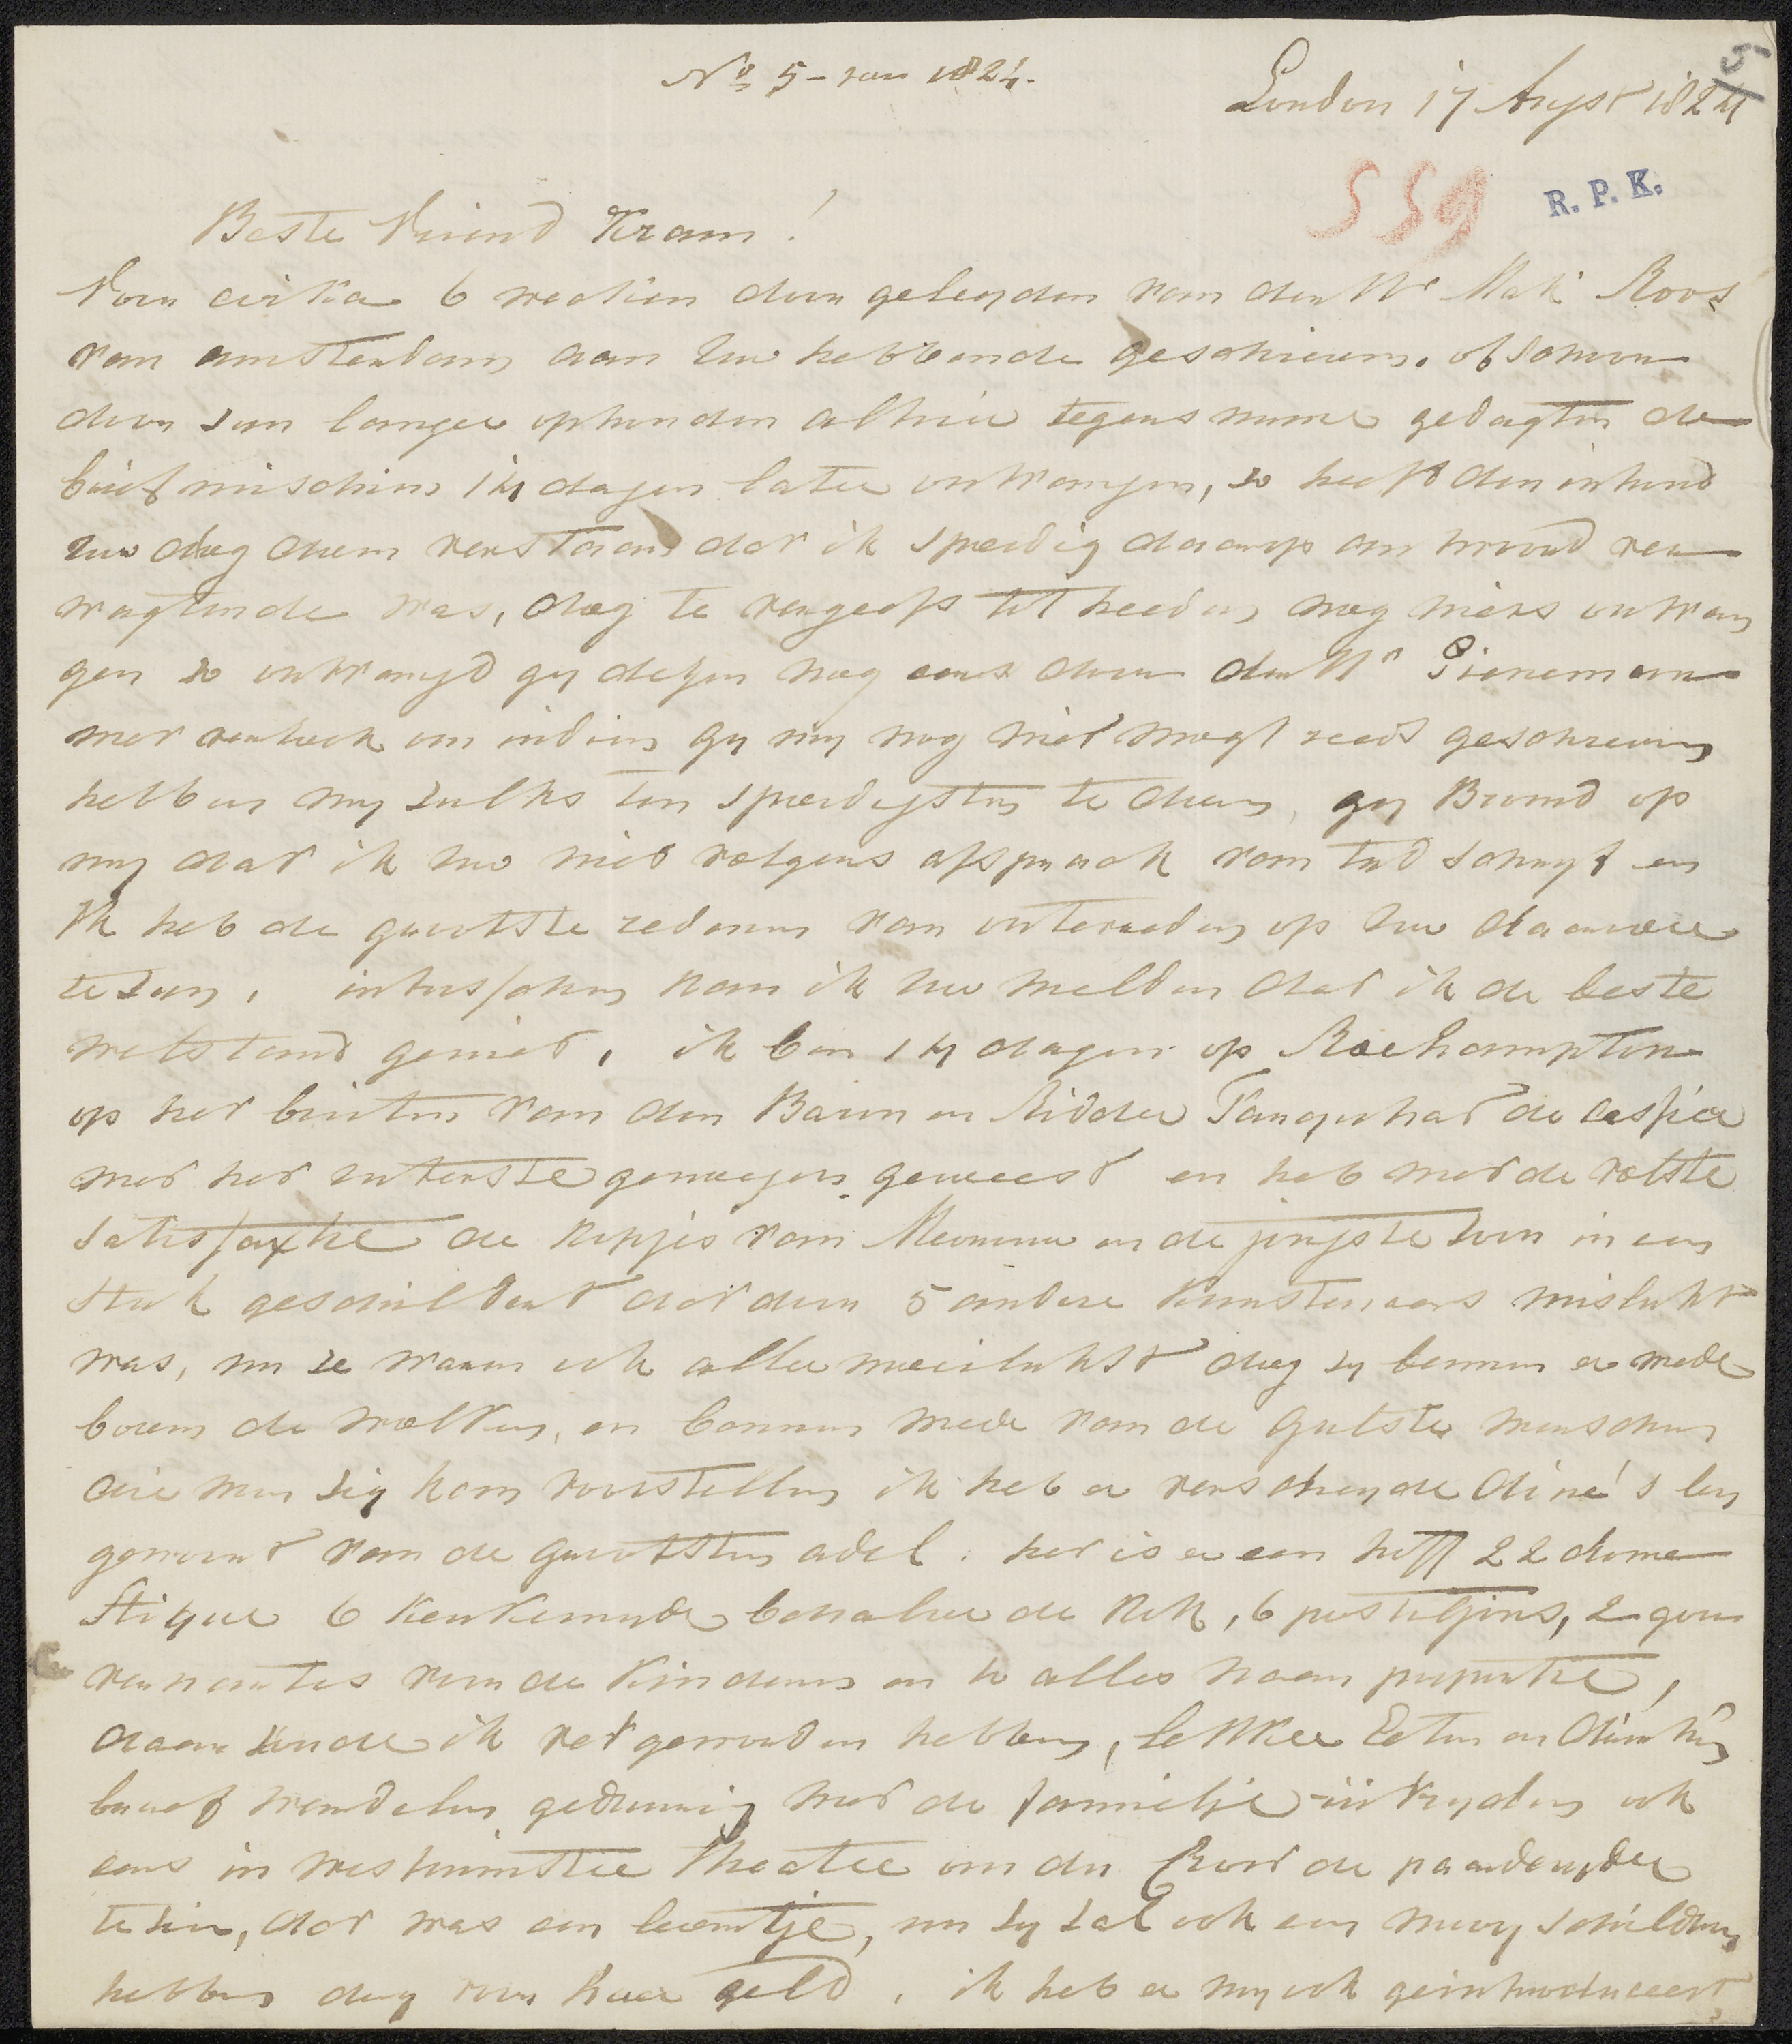 No 5 - van 1824.
London 17 Augst 1824
5
559
R. P. K.
Beste Vriend Kram!
Voor cirka 6 weeken door geleyden van den Hr Mak Roos
van amsterdam aan Uw hebbende geschreeven, ofschoon
door zyn langer ophouden alhier tegens myne gedagten de
brief mischien 14 dagen later ontvangen, zo heeft den inhoud
Uw dog doen verstaan dat ik spoedig daarop antwoord ver
wagtende was, dog te vergeefs tot heeden nog niets ontvan
gen zo ontvangd gy dezen nog eens door den Hr Pieneman
met verzoek om indien gy my nog niet mogt reeds geschreeven
hebben my zulks ten spoedigsten te doen, gy Bromd op
my dat ik Uw niet volgens afspraak van tyd schryf en
Ik heb de grootste redenen van ontevreeden op Uw daarover
te zyn, intusschen kan ik Uw melden dat ik de beste
welstand geniet, ik ben 14 dagen op Roehampton
op het buiten van den Baron en Ridder Farquhar de
met het uiterste genoegen geweest en heb met de volste
satisfaxtie de kopjes van Mevrouw en de jongste zoon in een
stuk geschildert dat door 5 andere kunstenaars mislukt
was, nu ze waren ook aller moeilykst dog zy bennen er mede
boven de wolken, en bennen mede van de grootste menschen
die men zig kan voorstellen ik heb er verscheyde diné's by
gewoont van de grootsten adel. het is er een hoff 22 dome
stique 6 keukemeyde behalve de kok, 6 postiljons, 2 gou
vernantes voor de kinderen en zo alles naar proportie,
daar zoude ik vet geworden hebben, lekker Eeten en drinken
braaf wandelen gedurig met de familje uitryden ook
eens in westminster Theater om den Beer de paarderyder
te zien, dat was een beentje, nu zy zal ook een mooy schildery
hebben dog voor haar geld, ik heb er my ook geintroduceert